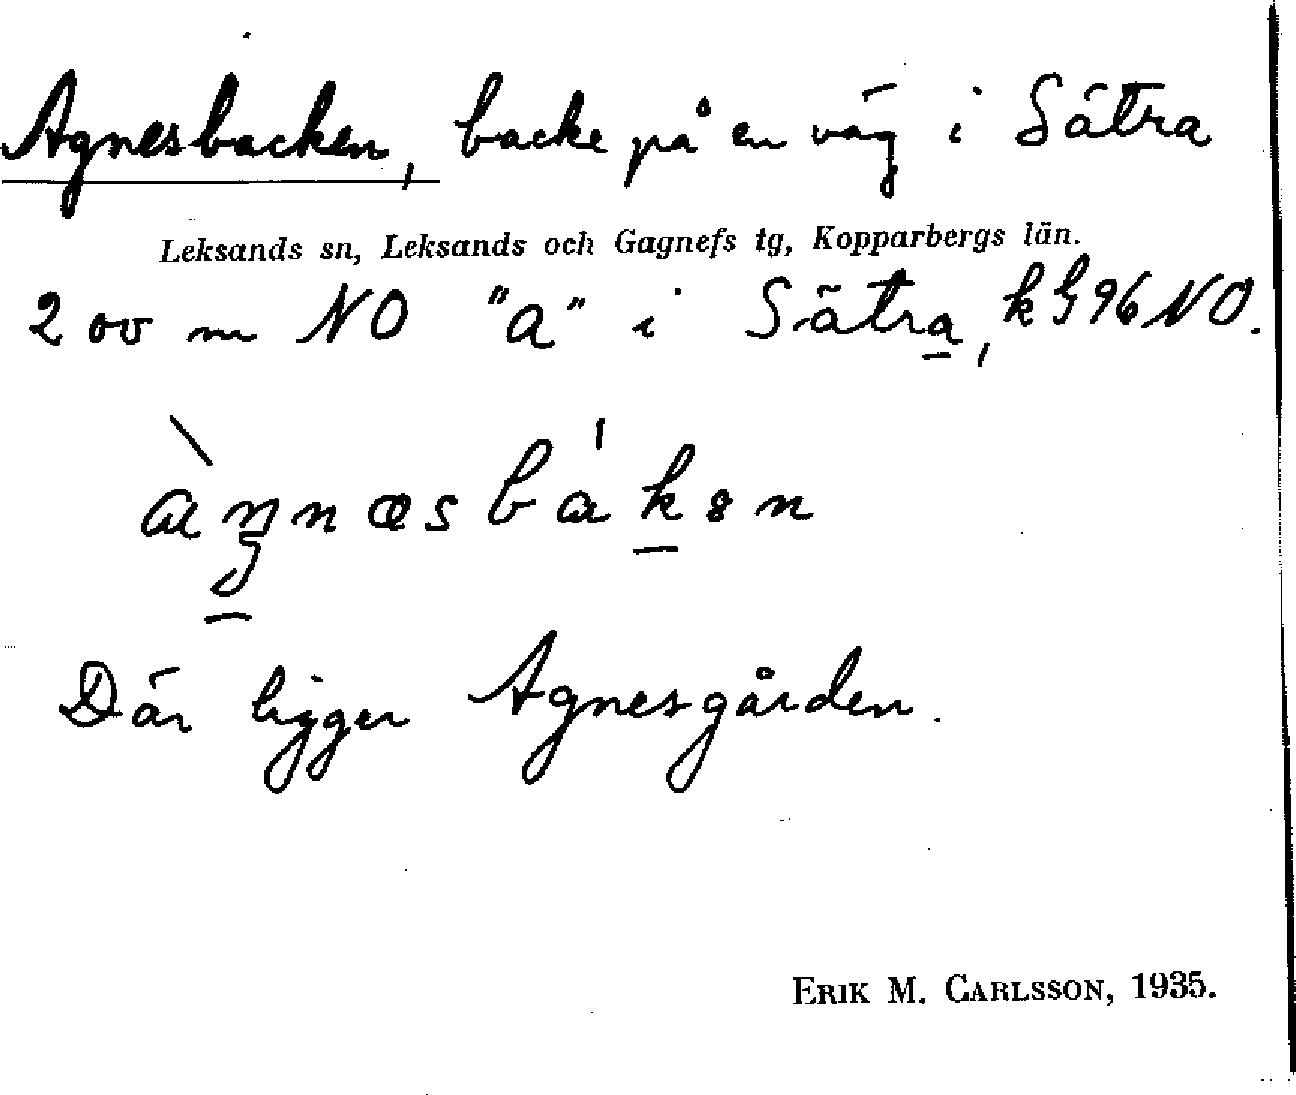 Agnesbacken, backe på en väg i Sätra
Leksands sn, Leksands och Gagnefs tg, Kopparbergs län.
200 m NO "a" i Sätra, k G 96 NO.
àŋnæsbákən
Där ligger Agnesgården.
ERIK M. CARLSSON, 1935.